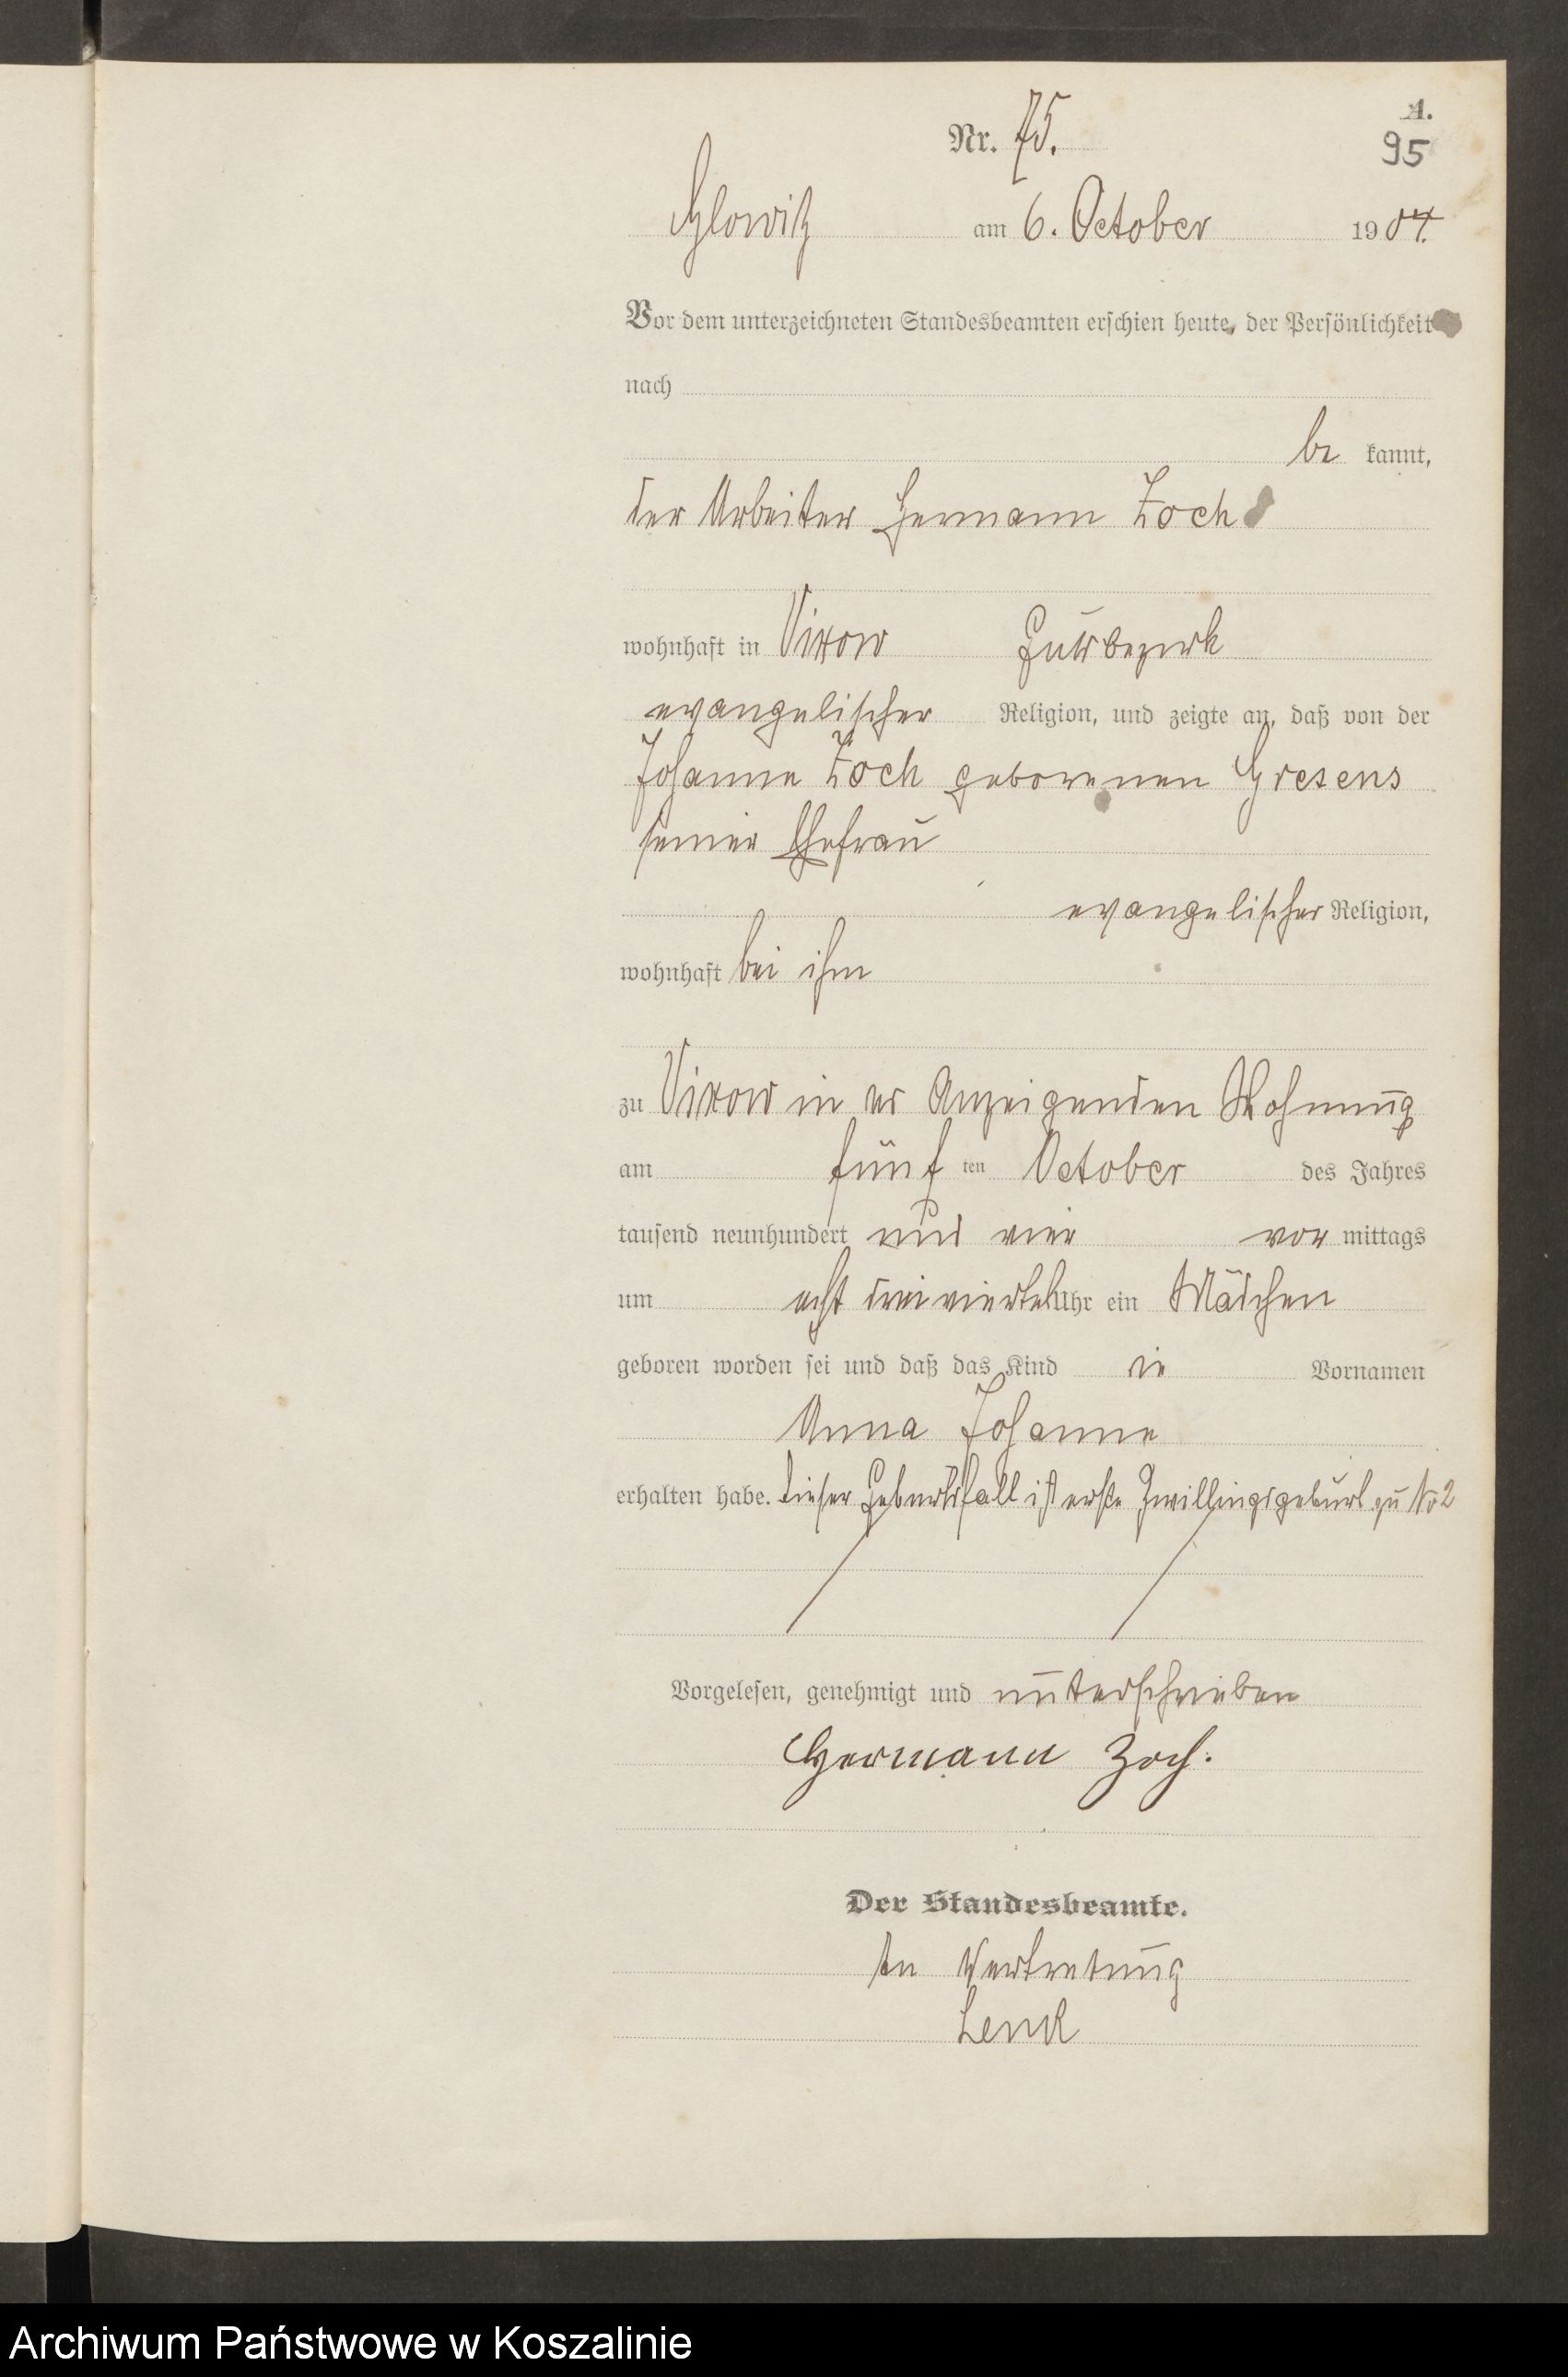 A.
Nr. 75.
95
Glowitz am 6. October 1904.
Vor dem unterzeichneten Standesbeamten erschien heute, der Persönlichkeit
nach
be kannt,
der Arbeiter Hermann Zoch
wohnhaft in Vixow Gutsbezirk
evangelischer Religion, und zeigte an, daß von der
Johanne Zoch geborenen Gresens
seiner Ehefrau
evangelischer Religion,
wohnhaft bei ihm
zu Vixow in des Anzeigenden Wohnung
am fünf ten October des Jahres
tausend neunhundert und vier vor mittags
um acht dreiviertel Uhr ein Mädchen
geboren worden sei und daß das Kind die Vornamen
Anna Johanne
erhalten habe. Dieser Geburtsfall ist erste Zwillingsgeburt zu No 2
Vorgelesen, genehmigt und unterschrieben
Hermann Zoch.
Der Standesbeamte.
In Vertretung
Archiwum Państwowe w Koszalinie